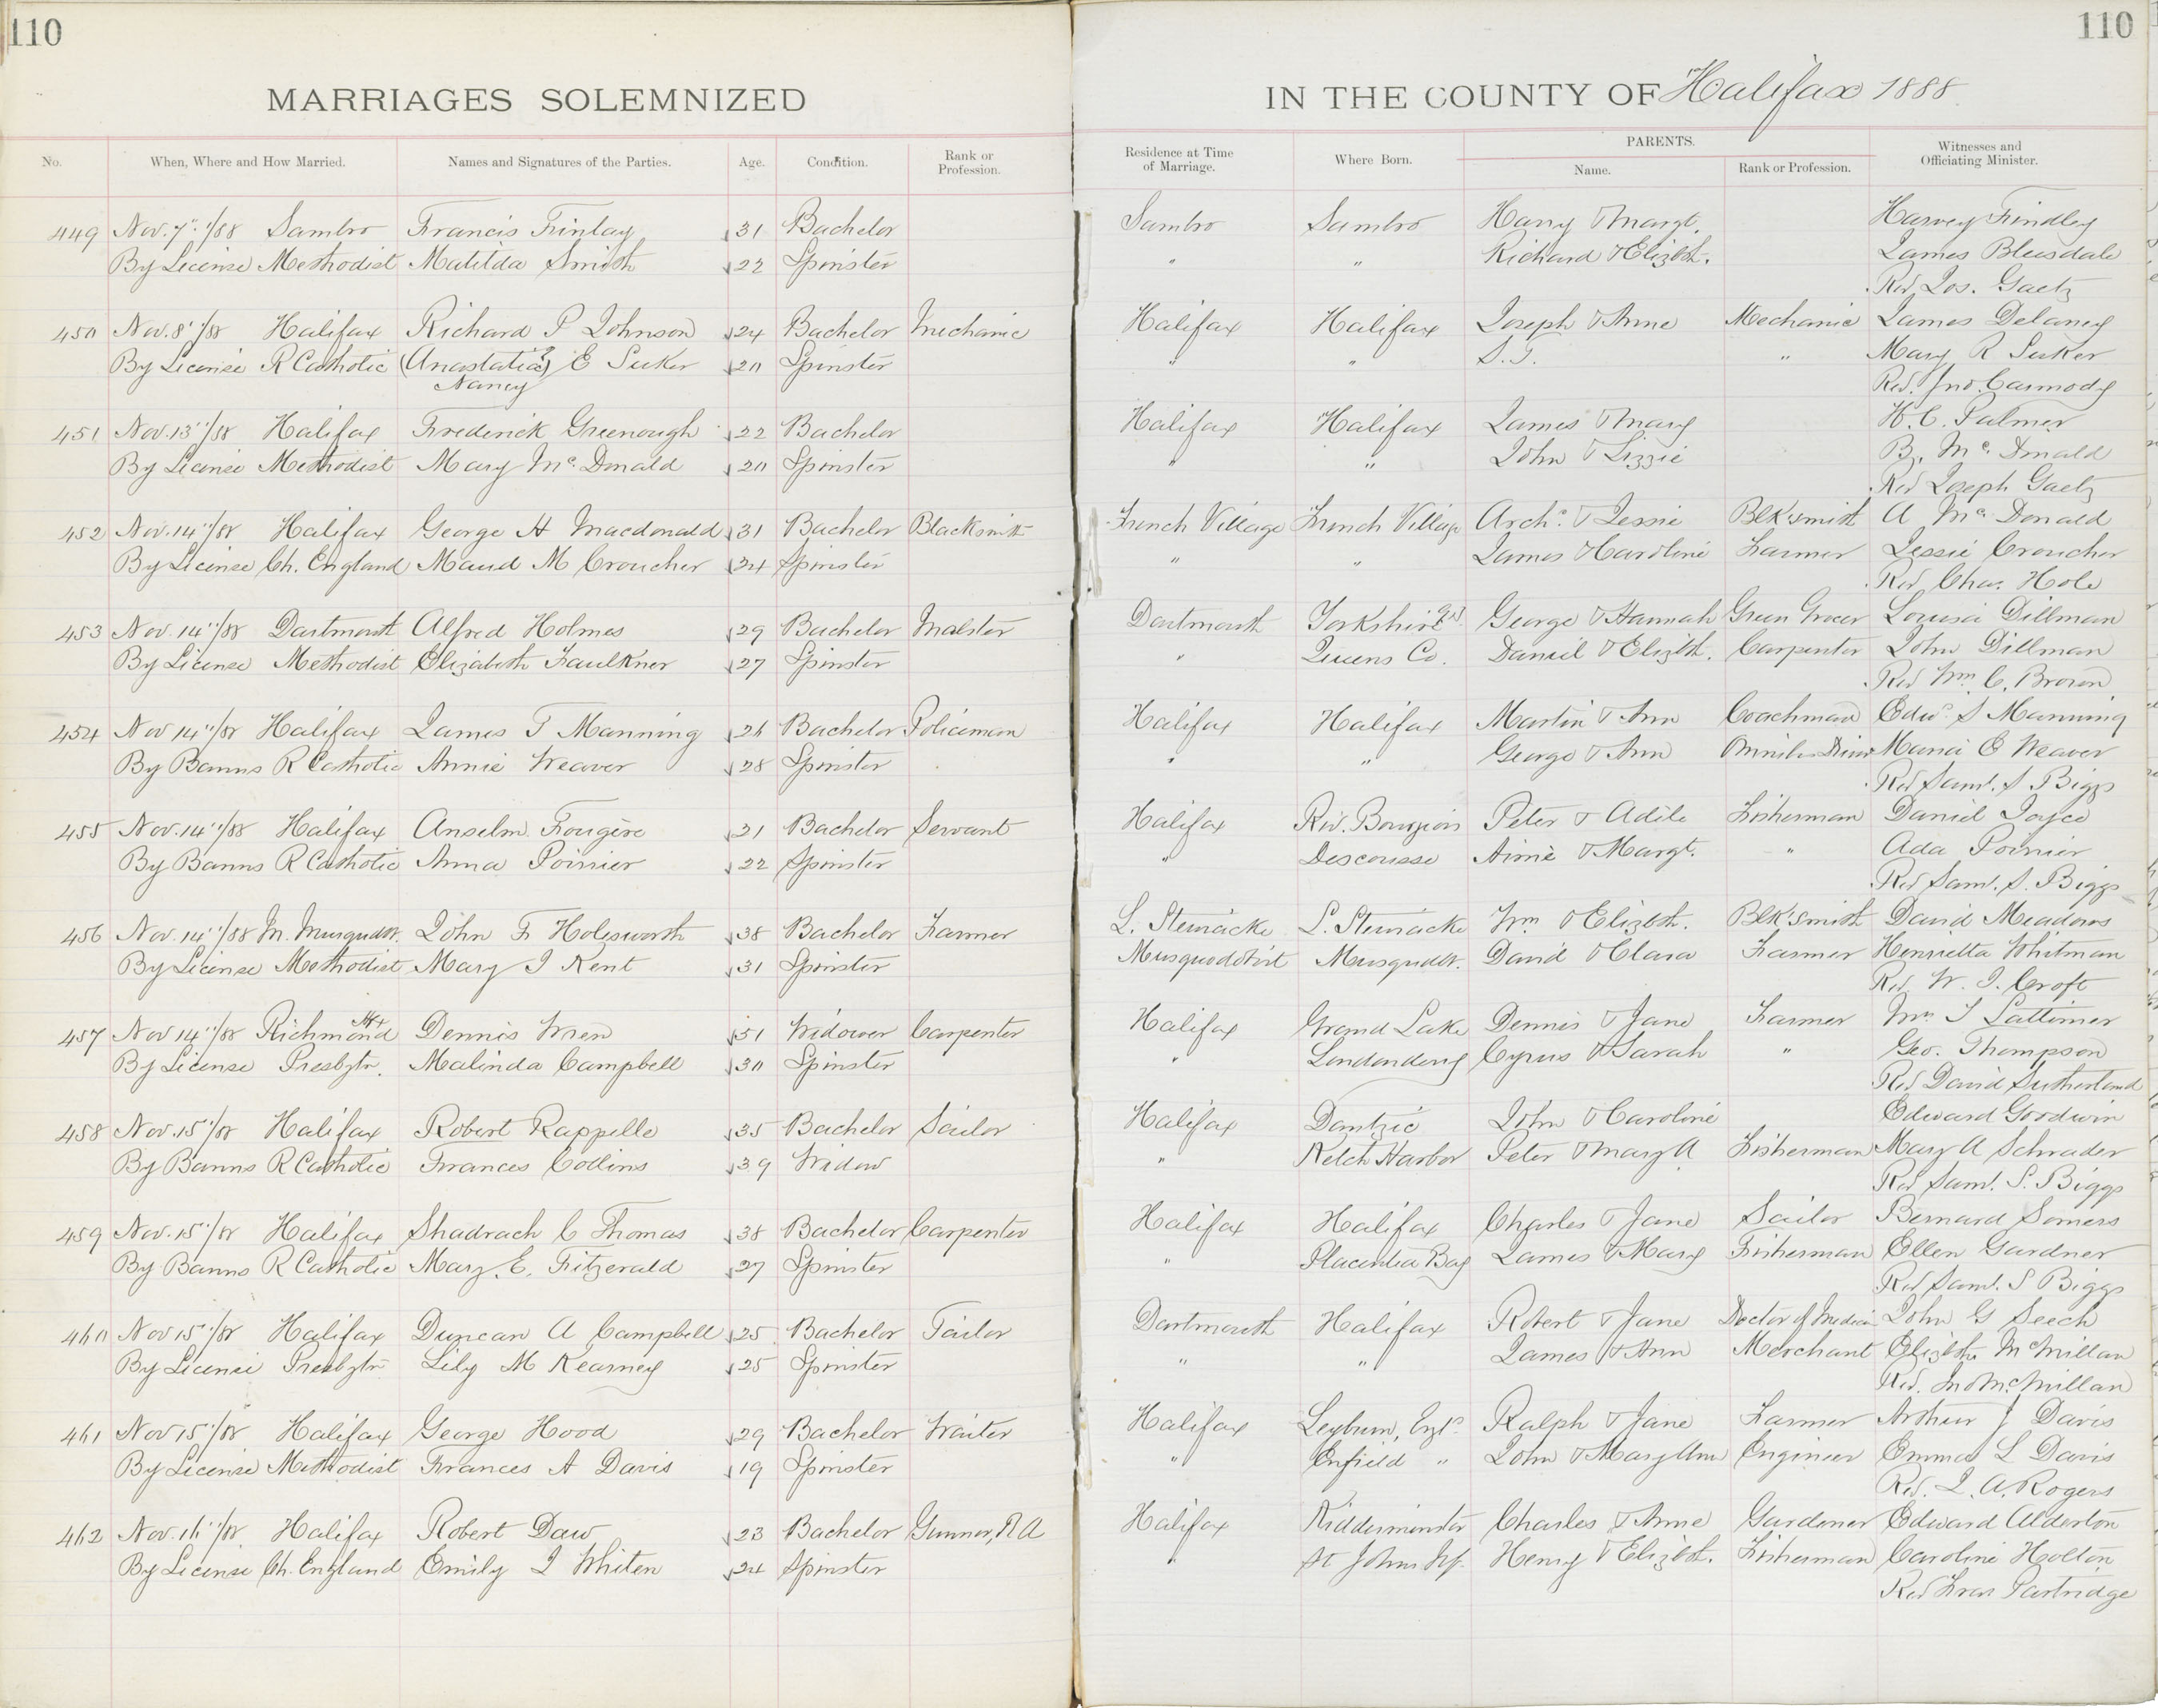 110
110
MARRIAGES SOLEMNIZED
IN THE COUNTY OF Halifax 1888
No. When, Where and How Married. Names and Signatures of the Parties. Age. Condition. Rank or Profession. Residence at Time of Marriage. Where Born. PARENTS. Name. Rank or Profession. Witnesses and Officiating Minister.
449 Nov. 7"/88 Sambro Francis Finlay 31 Bachelor Sambro Sambro Harry & Margt. Harvey Findley
By License Methodist Matilda Smith 22 Spinster " " Richard & Elizbth. James Bleasdale
Rev. Jos. Gaetz
450 Nov. 8"/88 Halifax Richard P Johnson 24 Bachelor Mechanic Halifax Halifax Joseph & Anne Mechanic James Delaney
By License R Catholic (Anastatia?) E Suker 20 Spinster " " S.T. " Mary R Suker
Nancy Rev. Jno. Carmody
451 Nov. 13"/88 Halifax Frederick Greenough 22 Bachelor Halifax Halifax James & Mary H. C. Palmer
By License Methodist Mary McDonald 20 Spinster " " John & Lizzie B. McDonald
Rev Joseph Gaetz
452 Nov. 14"/88 Halifax George H Macdonald 31 Bachelor Blacksmith French Village French Village Archd. & Jessie Blk'smith A McDonald
By License Ch. England Maud M Croucher 24 Spinster " " James & Caroline Farmer Jessie Croucher
Rev Chas. Hole
453 Nov. 14"/88 Dartmouth Alfred Holmes 29 Bachelor Malster Dartmouth Yorkshire Gd. George & Hannah Green Grocer Louisa Dillman
By License Methodist Elizabeth Faulkner 27 Spinster " Queens Co. Daniel & Elizbth. Carpenter John Dillman
Rev Wm. C. Brown
454 Nov 14"/88 Halifax James T Manning 26 Bachelor Policeman Halifax Halifax Martin & Ann Coachman Edwd. S Manning
By Banns R Catholic Annie Weaver 28 Spinster " " George & Ann Omnibus Driver Maria E Weaver
Rev Saml. S Biggs
455 Nov. 14"/88 Halifax Anselm Fougère 21 Bachelor Servant Halifax Riv. Bourgeois Peter & Adile Fisherman Daniel Joyce
By Banns R Catholic Anna Poirier 22 Spinster " Descousse Aimé & Margt. " Ada Poirier
Rev Saml. S. Biggs
456 Nov. 14"/88 M. Musqudbt. John F Holesworth 38 Bachelor Farmer L. Stewiacke L. Stewiacke Wm & Elizbth. Blk'smith David Meadows
By License Methodist Mary J Kent 31 Spinster Musquodoboit Musqudbt. David & Clara Farmer Henrietta Whitman
Rev. W. J. Croft
457 Nov 14"/88 Richmond Hfx Dennis Wren 51 Widower Carpenter Halifax Grand Lake Dennis & Jane Farmer Wm J Lattimer
By License Presbytn. Malinda Campbell 30 Spinster " Londonderry Cyrus & Sarah " Geo. Thompson
Rev David Sutherland
458 Nov. 15"/88 Halifax Robert Rappelle 35 Bachelor Sailor Halifax Dantzic John & Caroline Edward Goodwin
By Banns R Catholic Frances Collins 39 Widow " Ketch Harbor Peter & Mary A Fisherman Mary A Schrader
Rev Saml. S. Biggs
459 Nov. 15"/88 Halifax Shadrach C Thomas 38 Bachelor Carpenter Halifax Halifax Charles & Jane Sailor Bernard Somers
By Banns R Catholic Mary. E. Fitzerald 27 Spinster " Placentia Bay James & Mary Fisherman Ellen Gardner
Rev Saml. S Biggs
460 Nov 15"/88 Halifax Duncan A Campbell 25 Bachelor Tailor Dartmouth Halifax Robert & Jane Doctor of Medicin John G Seech
By License Presbytn Lily M Kearney 25 Spinster " " James & Ann Merchant Elizbth McMillan
Rev. Jno McMillan
461 Nov 15"/88 Halifax George Hood 29 Bachelor Waiter Halifax Leyburn, Engd. Ralph & Jane Farmer Arthur J Davis
By License Methodist Frances A Davis 19 Spinster " Enfield " John & Mary Ann Engineer Emma L Davis
Rev. J. A. Rogers
462 Nov. 16"/88 Halifax Robert Daw 23 Bachelor Gunner, R A Halifax Kidderminster Charles & Anne Gardener Edward Alderton
By License Ch. England Emily J Whiten 24 Spinster " St Johns Nf. Henry & Elizbt. Fisherman Caroline Holton
Rev Fras Partridge